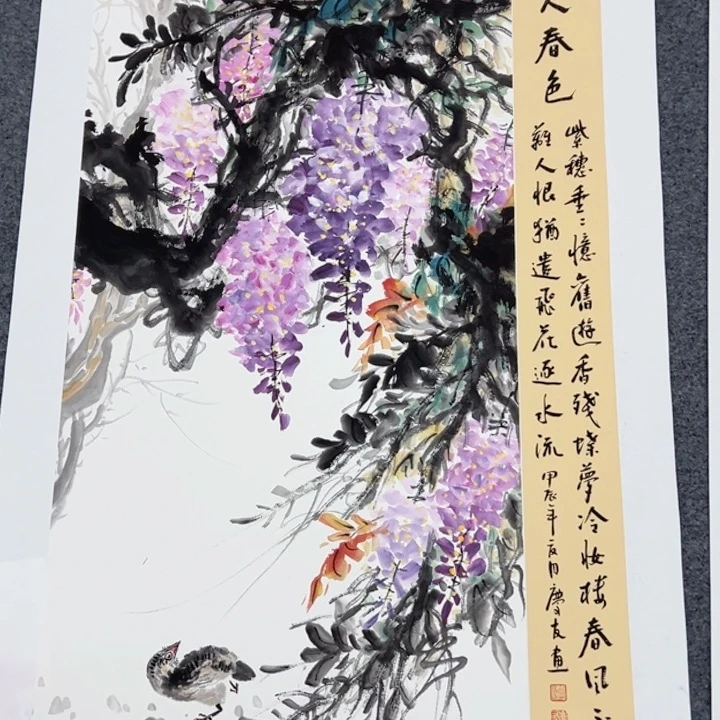 春色
紫穗垂〻憶舊遊香殘蝶夢冷妝樓春風
離人恨猶遣飛花逐水流 甲辰年夏月慶友画